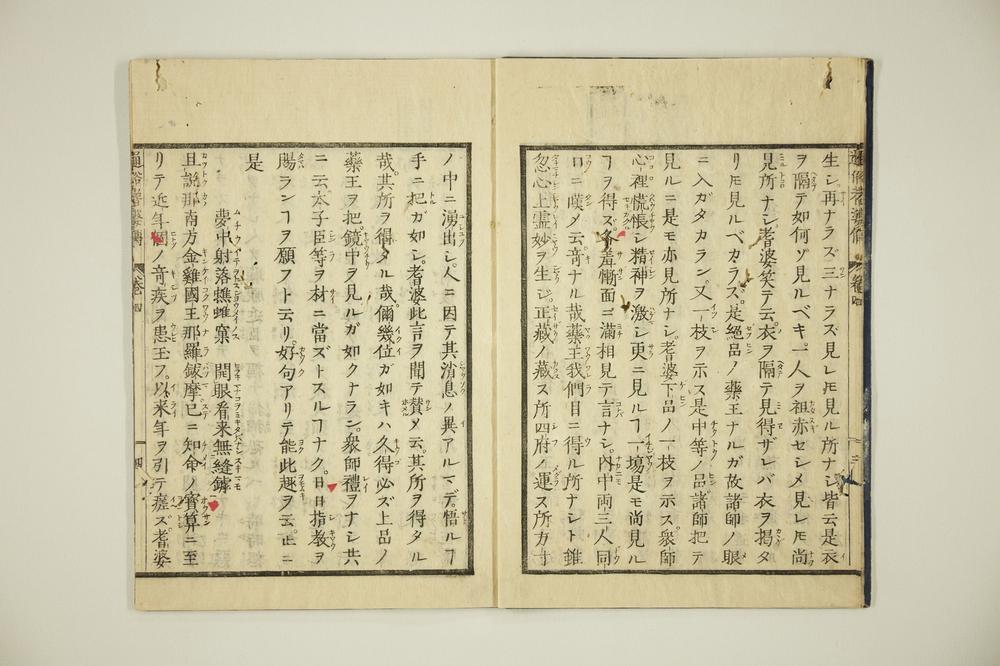 生シ再ナラズ三ナラズ見レトモ見ル所ナシ皆云是衣
ヲ隔テ如何ゾ見ルベキ一人ヲ袒赤セシメ見レトモ尚
見所ナシ耆婆笑テ云衣ヲ隔テ見得ザレバ衣ヲ掲タ
リトモ見ルベカラズ是絕品ノ藥王ナルガ故諸師ノ眼
ニ入ガタカラン又一枝ヲ示ス是中等ノ品諸師把テ
見ルニ是モ亦見所ナシ耆婆下品ノ一枝ヲ示ス衆師
心裡慌悵シ精神ヲ激シ更ニ見ルヿ一塲是モ尚見ル
ヿヲ得ズ各羞慚面ニ滿相見テ言ナシ內中両三人同
口ニ嘆メ云奇ナル哉藥王我們目ニ得ル所ナシト雖
忽心上霊妙ヲ生シ正藏ノ藏ス所四府ノ運ス所方寸
ノ中ニ湧出シ人ニ因テ其消息ノ異アルマデ悟ルヿ
手ニ把ガ如シ耆婆此言ヲ聞テ賛メ云其所ヲ得タル
哉其所ヲ得タル哉儞幾位ガ如キハ久得必ズ上品ノ
藥王ヲ把鏡中ヲ見ルガ如クナラン衆師禮ヲナシ共
ニ云太子臣等ヲ材ニ當ズトスルヿナク日日指敎ヲ
賜ランヿヲ願フト云リ好句アリテ能此趣ヲ云正ニ
是
夢中射落蟭螟窠 開眼看来無縫鏬
且說那南方金雞國王那羅鈸摩已ニ知命ノ寳算ニ至
リテ近年ノ奇疾ヲ患玉フ以来年ヲ引テ瘥ズ耆婆